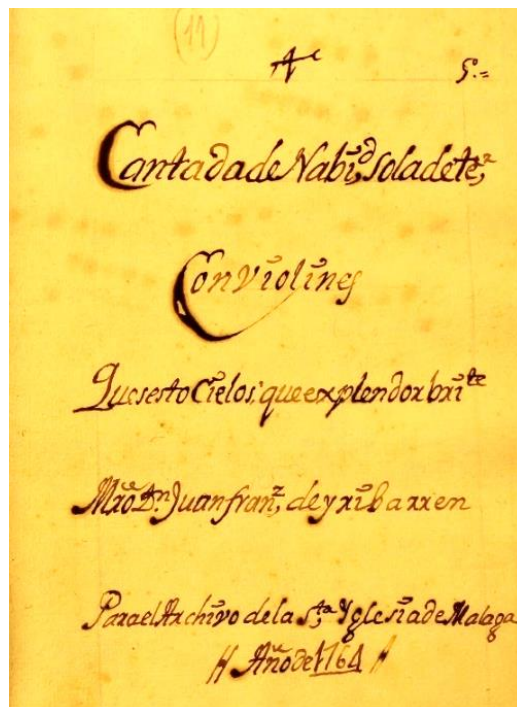 (11)
A^c 5.=
Cantada de Nabi^d, sola de te^r,
Con violines
Ques esto Cielos; que explendor bri^te
Mrõ Dn. Juan fran^z, de yribarren
Para el Archivo de la S^ta Yglesia de Malaga
// Año de 1764 //